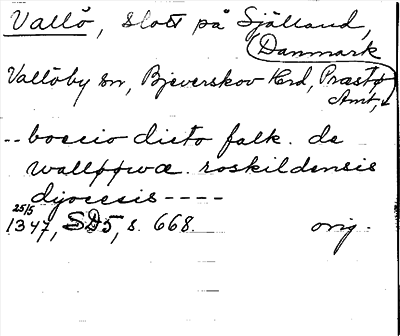 Vallö, slott på Själland,
Danmark
Vallöby sn, Bjeverskov Hrd, Præstø
Amt,
-- boecio dicto falk. de
walløøwæ. roskildensis
dyocesis ----
25/5
1347, SD5, s. 668. orig.